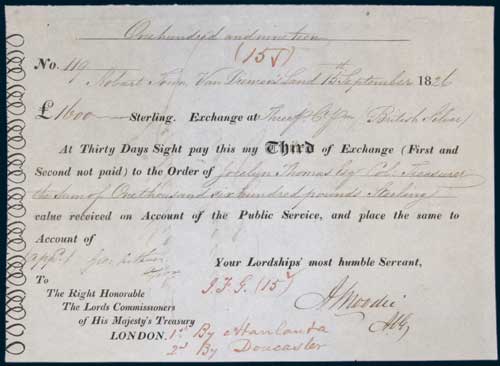 One hundred and nineteen
(15 )
No. 119
Hobart Town Van Diemen's Land 15th September 1826
£1600 Sterling. Exchange at Three P Ct Pm (British Silver)
At Thirty Days Sight pay this my Third of Exchange (First and
Second not paid) to the Order of Jocelyn Thomas Esq Col. Treasurer
the sum of One thousand six hundred pounds Sterling
value received on Account of the Public Service, and place the same to
Account of
appd. Geo. Arthur
Your Lordships' most humble Servant,
To
The Right Honorable
The Lords Commissioners
of His Majesty's Treasury
LONDON.
J.F.G. (15 )
A Moodie
ACG
1st By
2nd By Doncaster